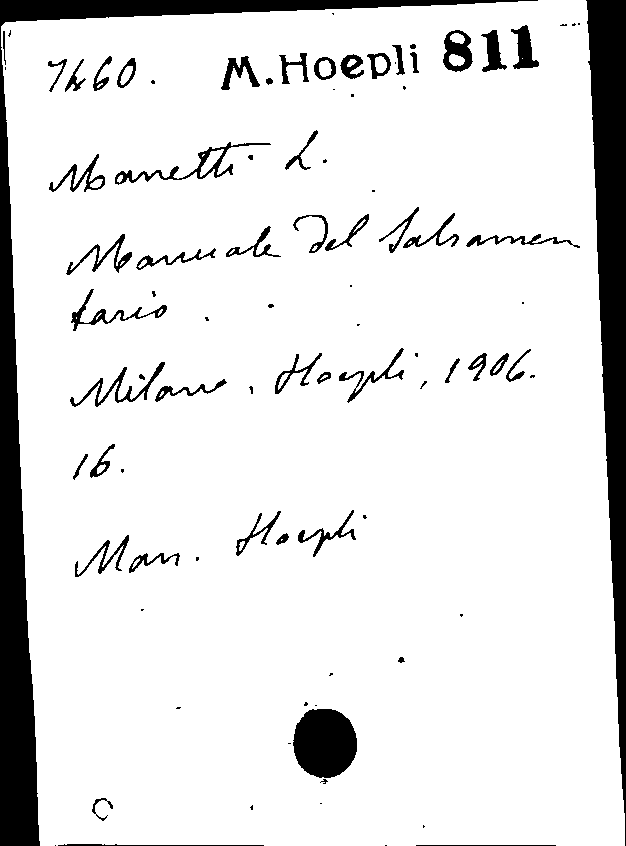 7460. M. Hoepli 811
Manetti L.
Manuale del Salsamen
tario.
Milano, Hoepli, 1906.
16.
Man. Hoepli